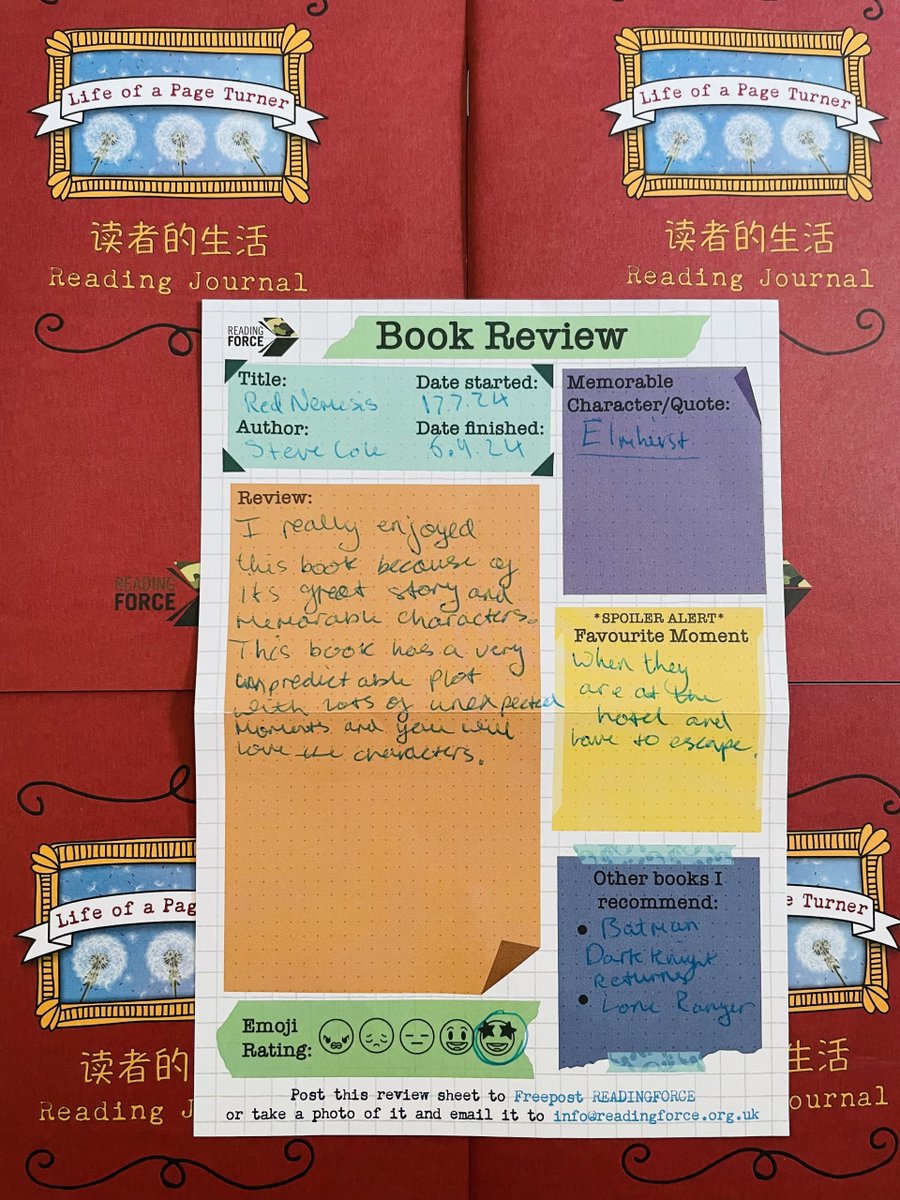 Life of a Page Turner
读者的生活
Reading Journal
Life of a Page Turner
读者的生活
Reading Journal
READING
FORCE
READING
FORCE
Book Review
Title:
Red Nemesis
Date started:
17.7.24
Author:
Steve Cole
Date finished:
6.9.24
Memorable
Character/Quote:
Elmhirst
Review:
I really enjoyed
this book because of
its great story and
memorable characters.
This book has a very
unpredictable plot
with lots of unexpected
moments and you will
love the characters.
*SPOILER ALERT*
Favourite Moment
When they
are at the
hotel and
have to escape.
Other books I
recommend:
• Batman
Dark Knight
Returns
• Lone Ranger
Emoji
Rating:
Post this review sheet to Freepost READINGFORCE
or take a photo of it and email it to info@readingforce.org.uk
Life of a Pag
读者的
Reading J
e Turner
生活
ournal